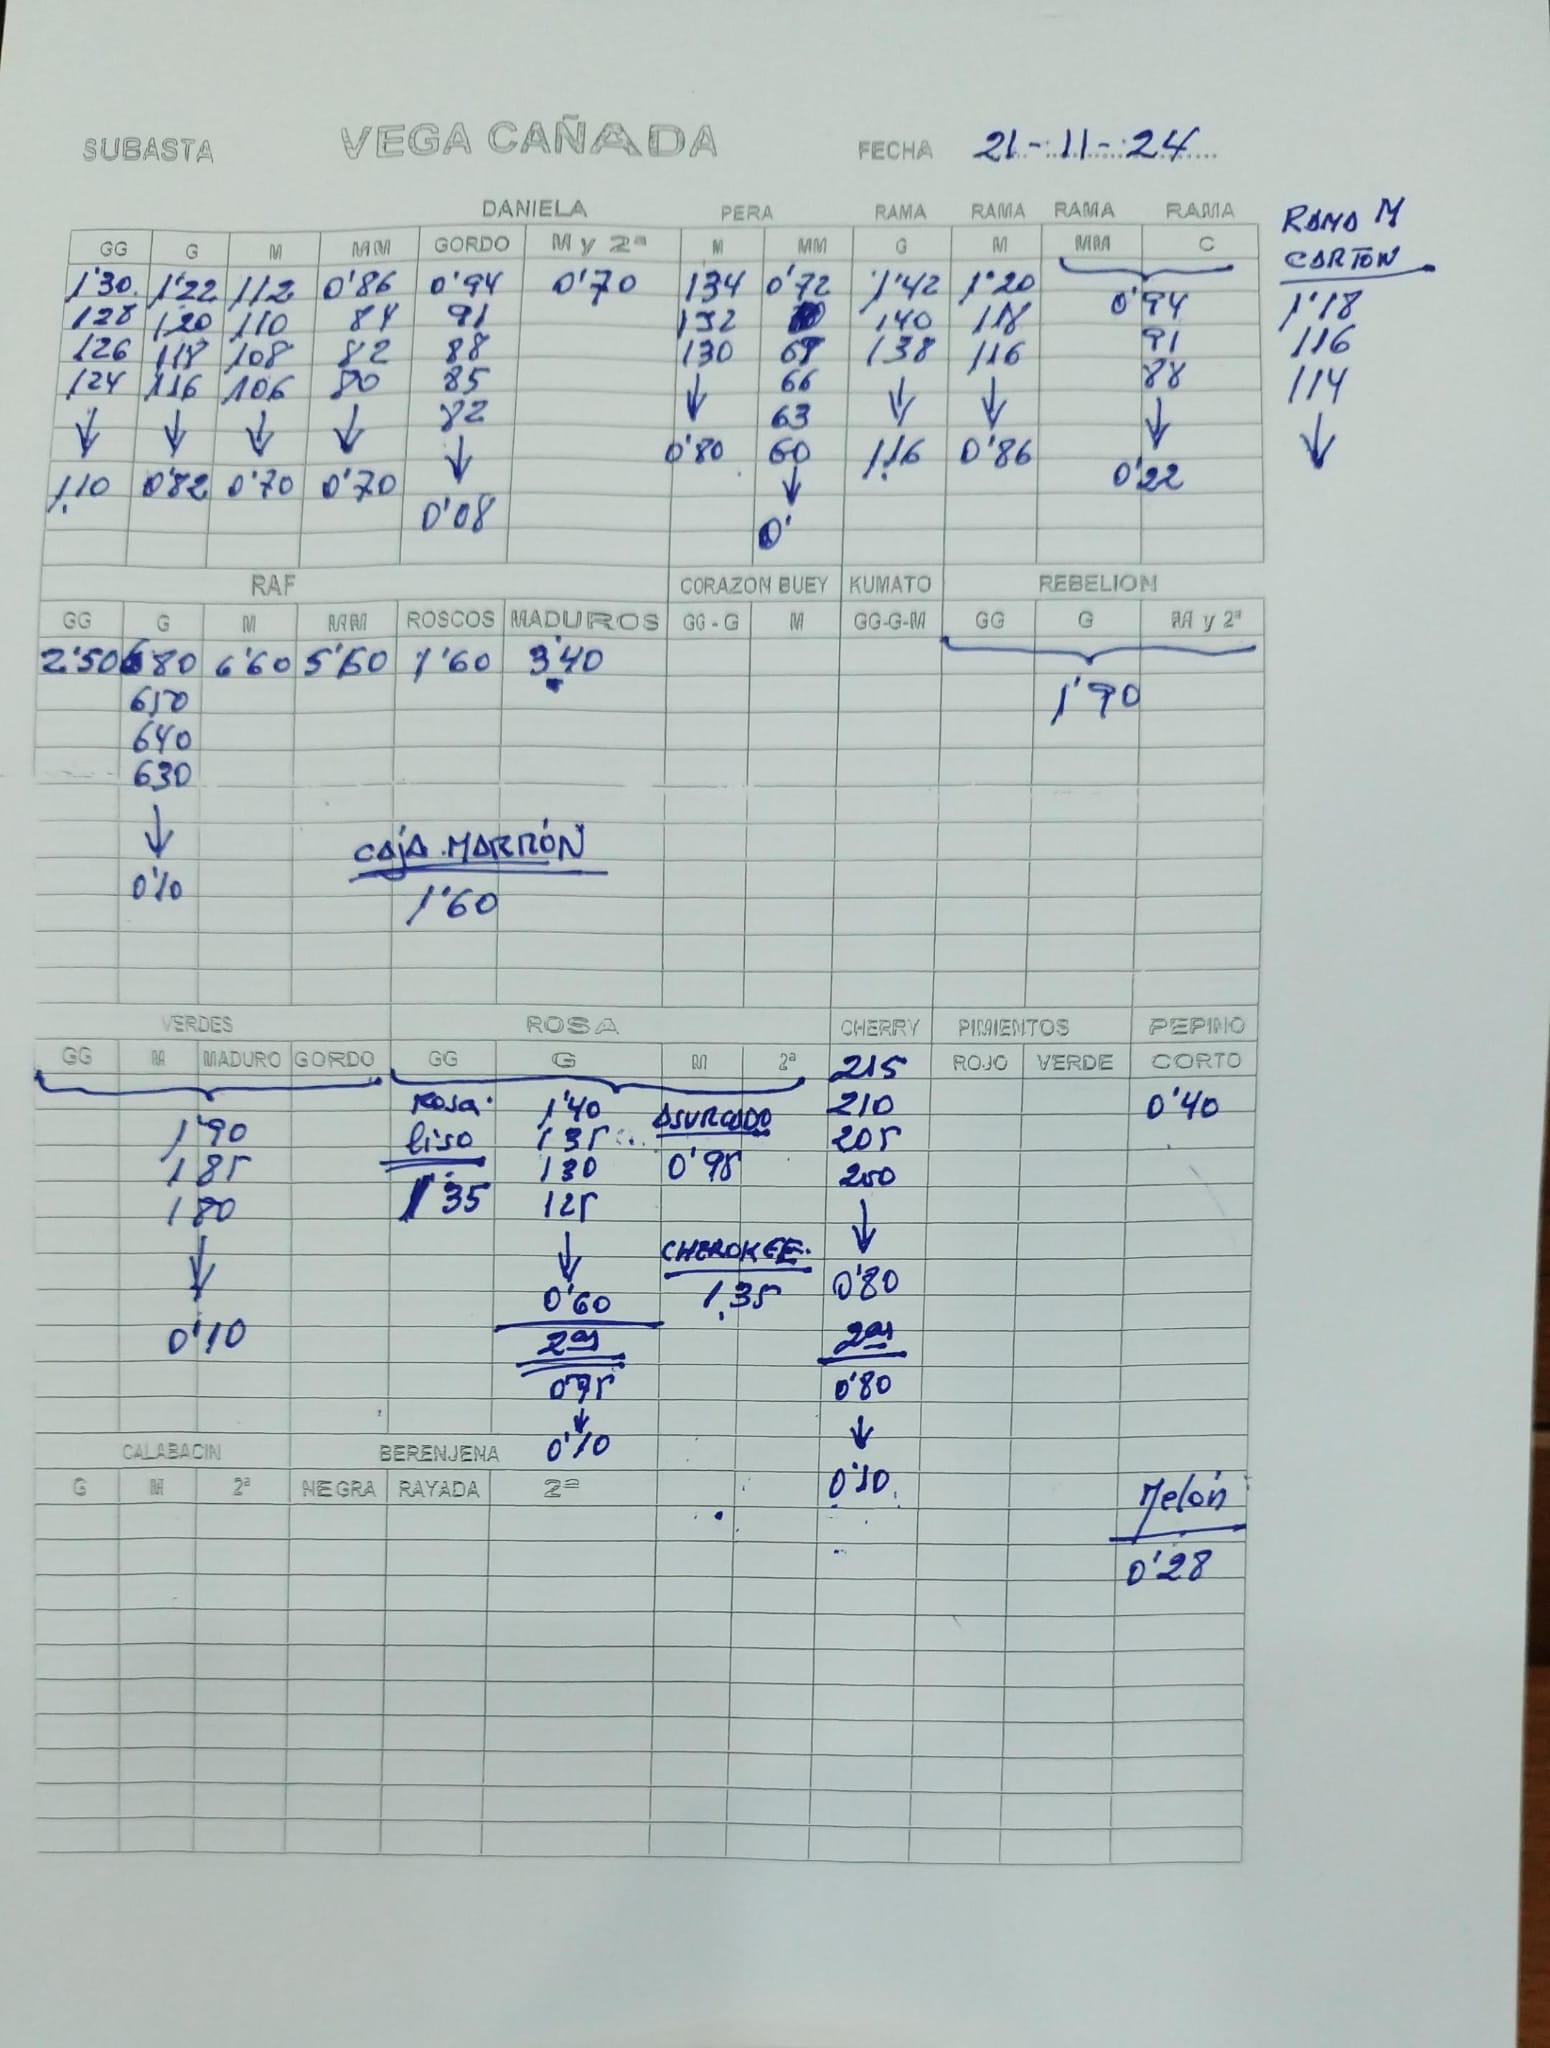 SUBASTA VEGA CAÑADA FECHA 21-11-24
DANIELA PERA RAMA RAMA RAMA RAMA RAMA M
GG G M MM GORDO M y 2ª M MM G M MM C CARTON
1'30 1'22 112 0'86 0'94 0'70 134 0'72 1'42 1'20 0'94 1'18
128 120 110 84 91 132 140 118 91 116
126 118 108 82 88 130 69 138 116 88 114
124 116 106 80 85 ↓ 66 ↓ ↓ ↓ ↓
↓ ↓ ↓ ↓ 82 63
0'80 60 1.16 0'86 0'22
1.10 0'82 0'70 0'70 ↓ ↓
0'08 0'
RAF CORAZON BUEY KUMATO REBELION
GG G M MM ROSCOS MADUROS GG-G M GG-G-M GG G M y 2ª
2'50 680 6'60 5'60 1'60 3'40
650 1'90
640
630
↓
CAJA MARRÓN
0'10 1'60
VERDES ROSA CHERRY PIMIENTOS PEPINO
GG M MADURO GORDO GG G M 2ª 215 ROJO VERDE CORTO
ROSA 1'40 ASURCADO 210 0'40
1'90 liso 135 205
185 130 0'95 200
180 1'35 125
↓ ↓ CHEROKEE ↓
0'60 1.35 0'80
0'10 2as 2as
0'95 0'80
↓ ↓
CALABACIN BERENJENA 0'10
G M 2ª NEGRA RAYADA 2ª 0'10 Melón
0'28